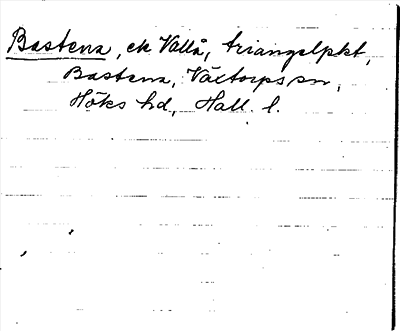 Bastena, ek Vallå, triangelpkt,
Bastena, Växtorps sn,
Höks hd, Hall. l.